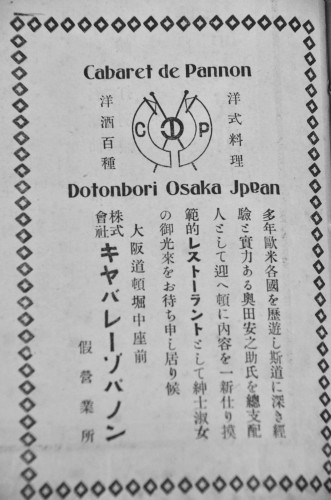 Cabaret de Pannon
洋式料理
洋酒百種
C P
Dotonbori Osaka Jpean
多年歐米各國を歷遊し斯道に深き經
驗と實力ある奥田安之助氏を總支配
人として迎へ頓に內容を一新仕り摸
範的レストーラントとして紳士淑女
の御光來をお待ち申し居り候
大阪道頓堀中座前
株式會社キャバレーゾパノン
假營業所